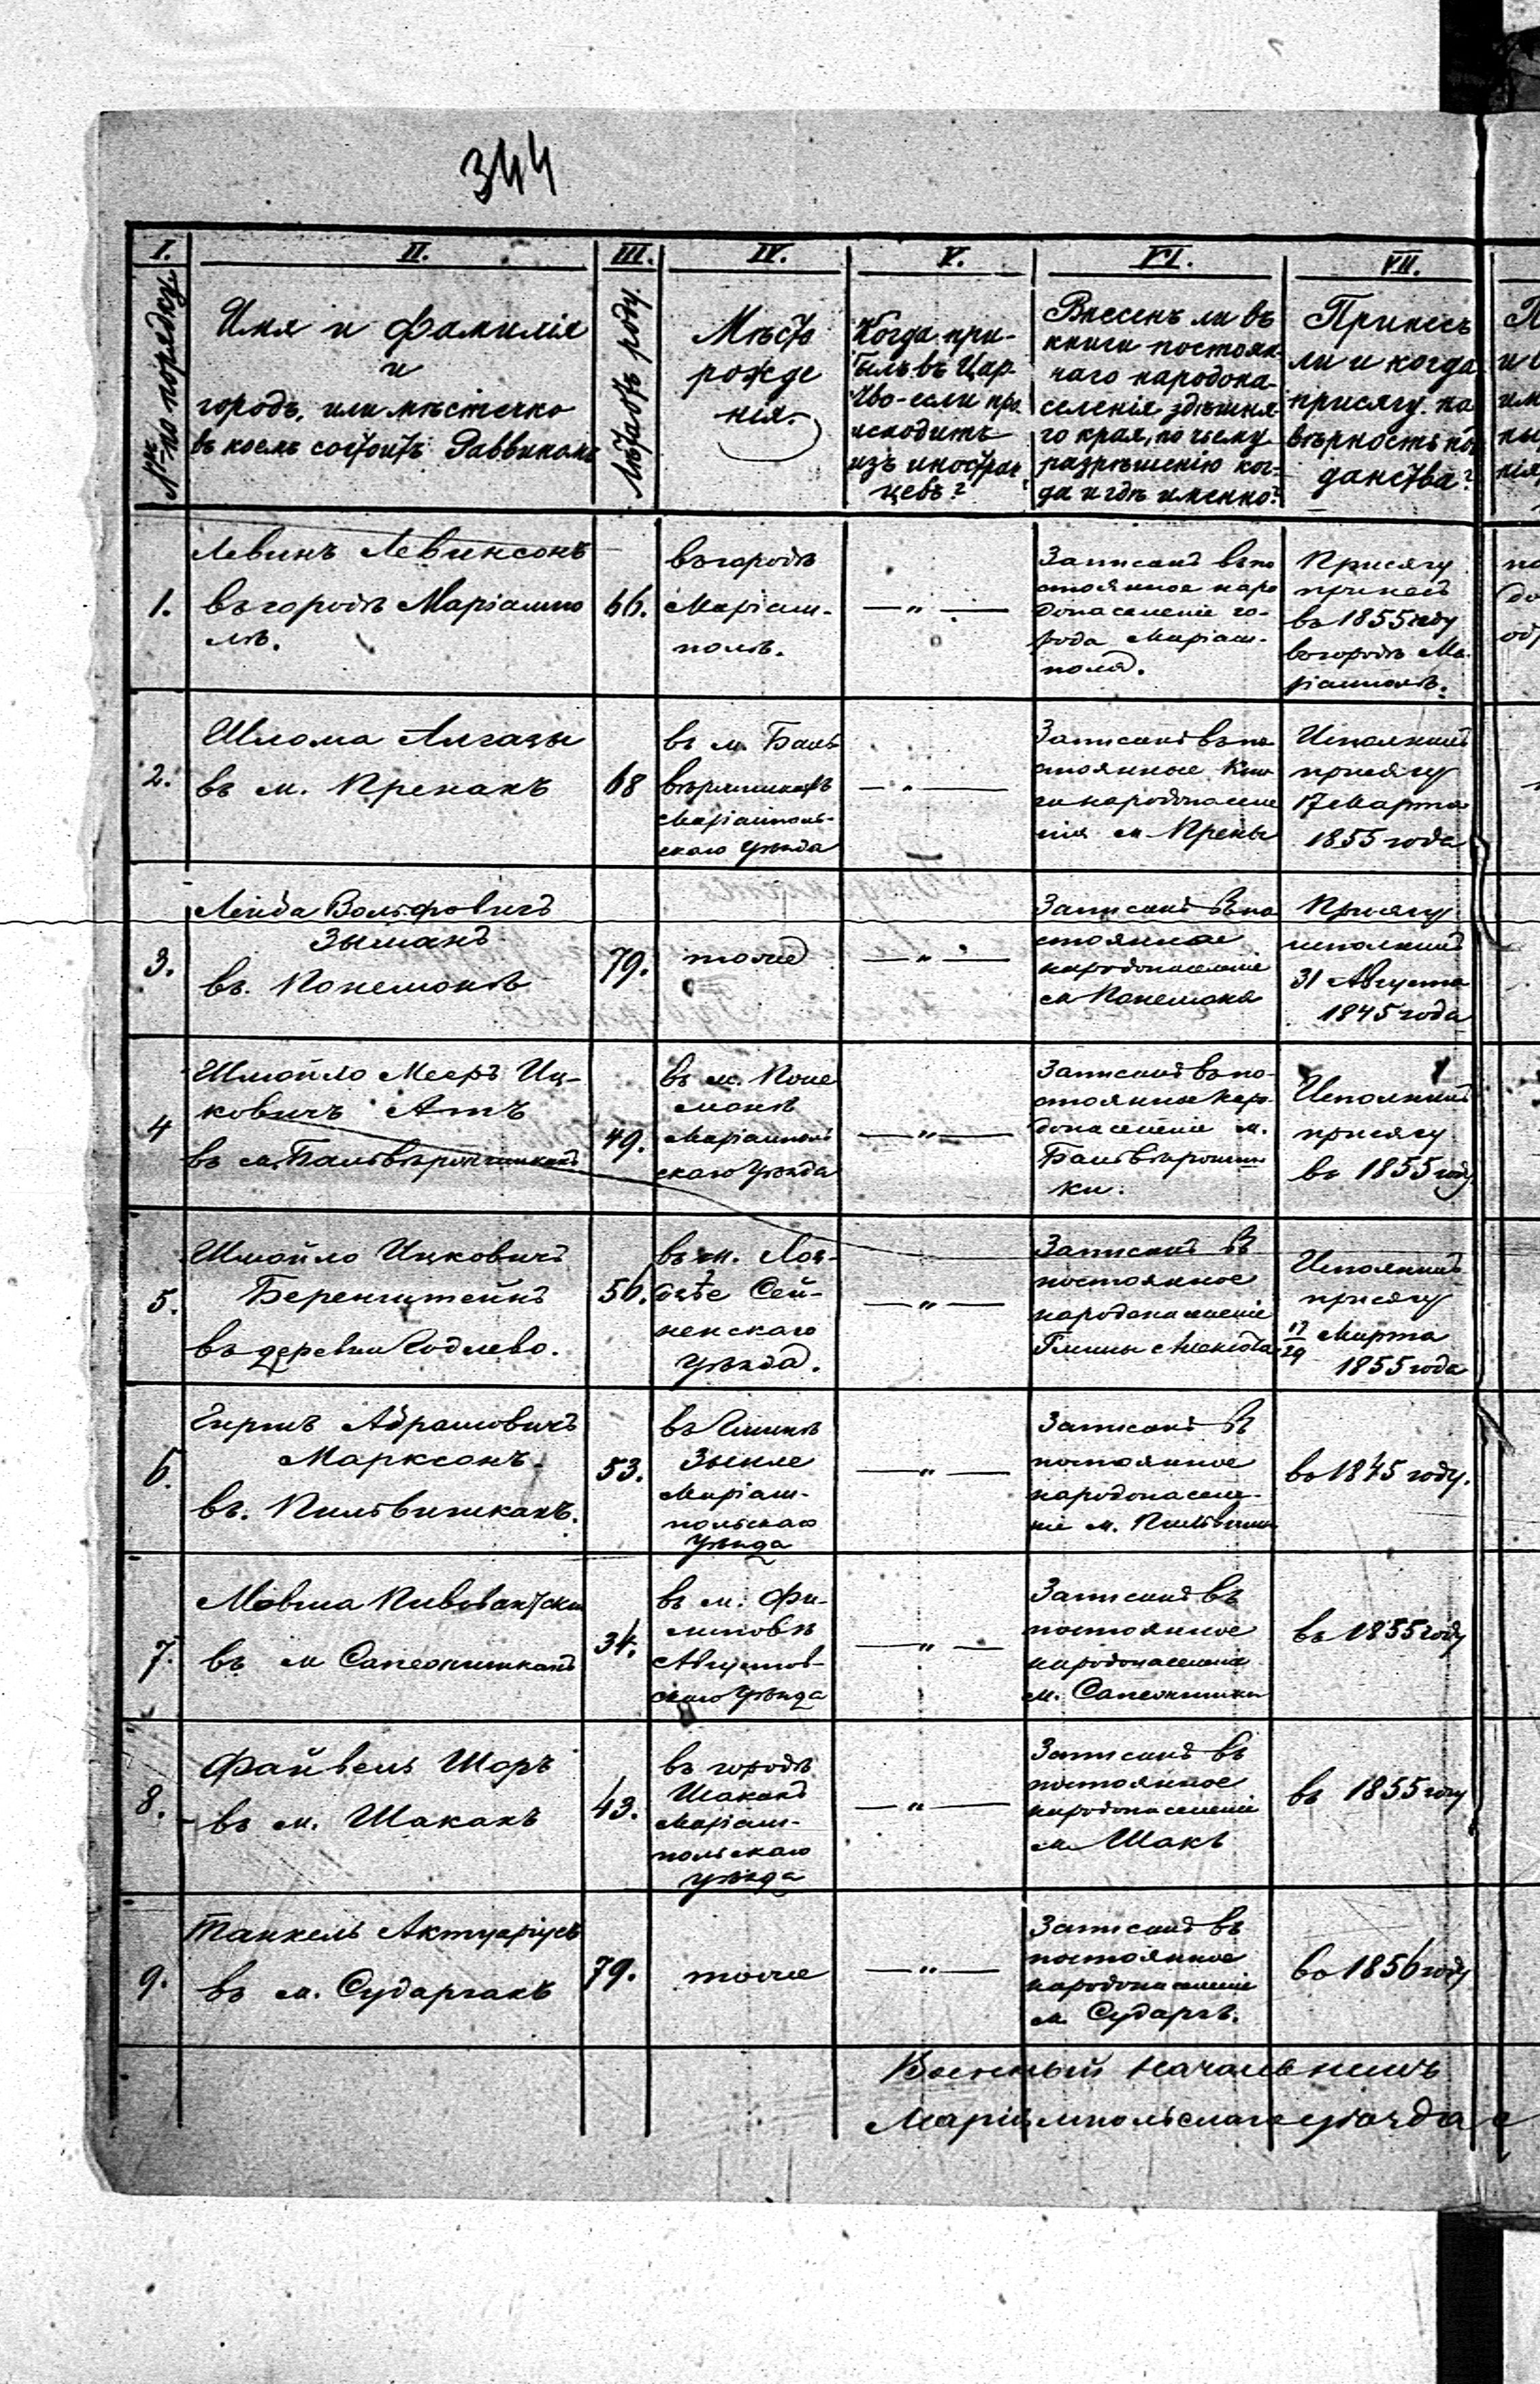 344
I. II. III. IV. V. VI. VII.
№№ по порядку.
Имя и фамилія
и
городъ, или мѣстечко
въ коемъ состоитъ Раввиномъ
Лѣта отъ роду.
Мѣсто
рожде
нія.
Когда при-
былъ въ Цар-
тво - если про-
исходитъ
изъ иностран
цевъ?
Внесенъ ли въ
книги постоян-
наго народона-
селенія здѣшня-
го края, по чьему
разрѣшенію ког-
да и гдѣ именно?
Принесъ
ли и когда
присягу на
вѣрность под
данства?
1.
Левинъ Левинсонъ
въ городѣ Маріампо
лѣ.
66.
въ городѣ
Маріам-
полѣ.
— " —
Записанъ въ по
стоянное наро
донаселеніе го-
рода Маріам-
поля.
Присягу
принесъ
въ 1855 году
въ городѣ Ма-
ріамполѣ.
2.
Шлома Алгазы
въ м. Пренахъ
68
въ м. Баль
вѣржишкахъ
Маріамполь-
скаго уѣзда
— " —
Записанъ въ по
стоянные Кни
ги народонаселе
нія м. Прены
Исполнилъ
присягу
17 Марта
1855 года
3.
Лейба Вольфовичъ
Зыманъ
въ. Понемонѣ
79.
тоже
— " —
Записанъ въ по
стоянное
народонаселеніе
м Понемона
Присягу
исполнилъ
31 Августа
1845 года
4
Шмойло Мееръ Иц-
ковичъ Атъ
въ м. Бальвѣржишкахъ
49.
въ м. Поне
монѣ
Маріамполь
скаго уѣзда
— " —
Записанъ въ по-
стоянное наро-
донаселеніе м.
Бальвѣржиш
ки.
Исполнилъ
присягу
въ 1855 году
5.
Шмойло Ицковичъ
Беренштейнъ
въ деревни Годлево.
56.
въ м. Лоз-
дзѣе Сей-
ненскаго
уѣзда.
— " —
Записанъ въ
постоянное
народонаселеніе
Гмины
Исполнилъ
присягу
17/29 Марта
1855 года
6.
Гиршъ Абрамовичъ
Марксонъ
въ. Пильвишкахъ.
53.
въ Гминѣ
Зыпле
Маріам-
польскаго
уѣзда
— " —
Записанъ въ
постоянное
народонаселе-
ніе м. Пильвишк
въ 1845 году.
7.
Мовша Пивовантски
въ м Сапежишкахъ
34.
въ м. Фи-
липовѣ
Августов-
скаго уѣзда
— " —
Записанъ въ
постоянное
народонаселеніе
м. Сапежишки
въ 1855 году
8.
Файвель Шоръ
въ м. Шакахъ
43.
въ городѣ
Шакахъ
Маріам-
польскаго
уѣзда
— " —
Записанъ въ
постоянное
народонаселеніе
м Шакъ
въ 1855 году
9.
Танхель Актуаріусъ
въ м. Сударгахъ
79.
тоже
— " —
Записанъ въ
постоянное
народонаселеніе
м. Сударгъ.
въ 1856 году
Военный Начальникъ
Маріампольскаго уѣзда